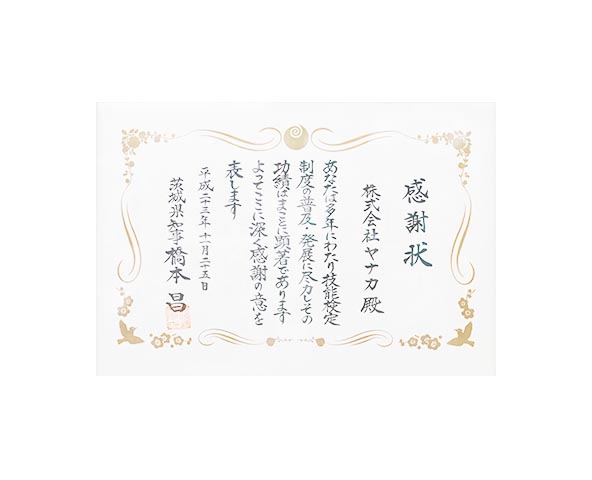 感謝状
株式会社ヤナカ殿
あなたは多年にわたり技能検定
制度の普及・発展に尽力しその
功績はまことに顕著であります
よってここに深く感謝の意を
表します
平成二十三年十一月二十五日
茨城県知事橋本昌